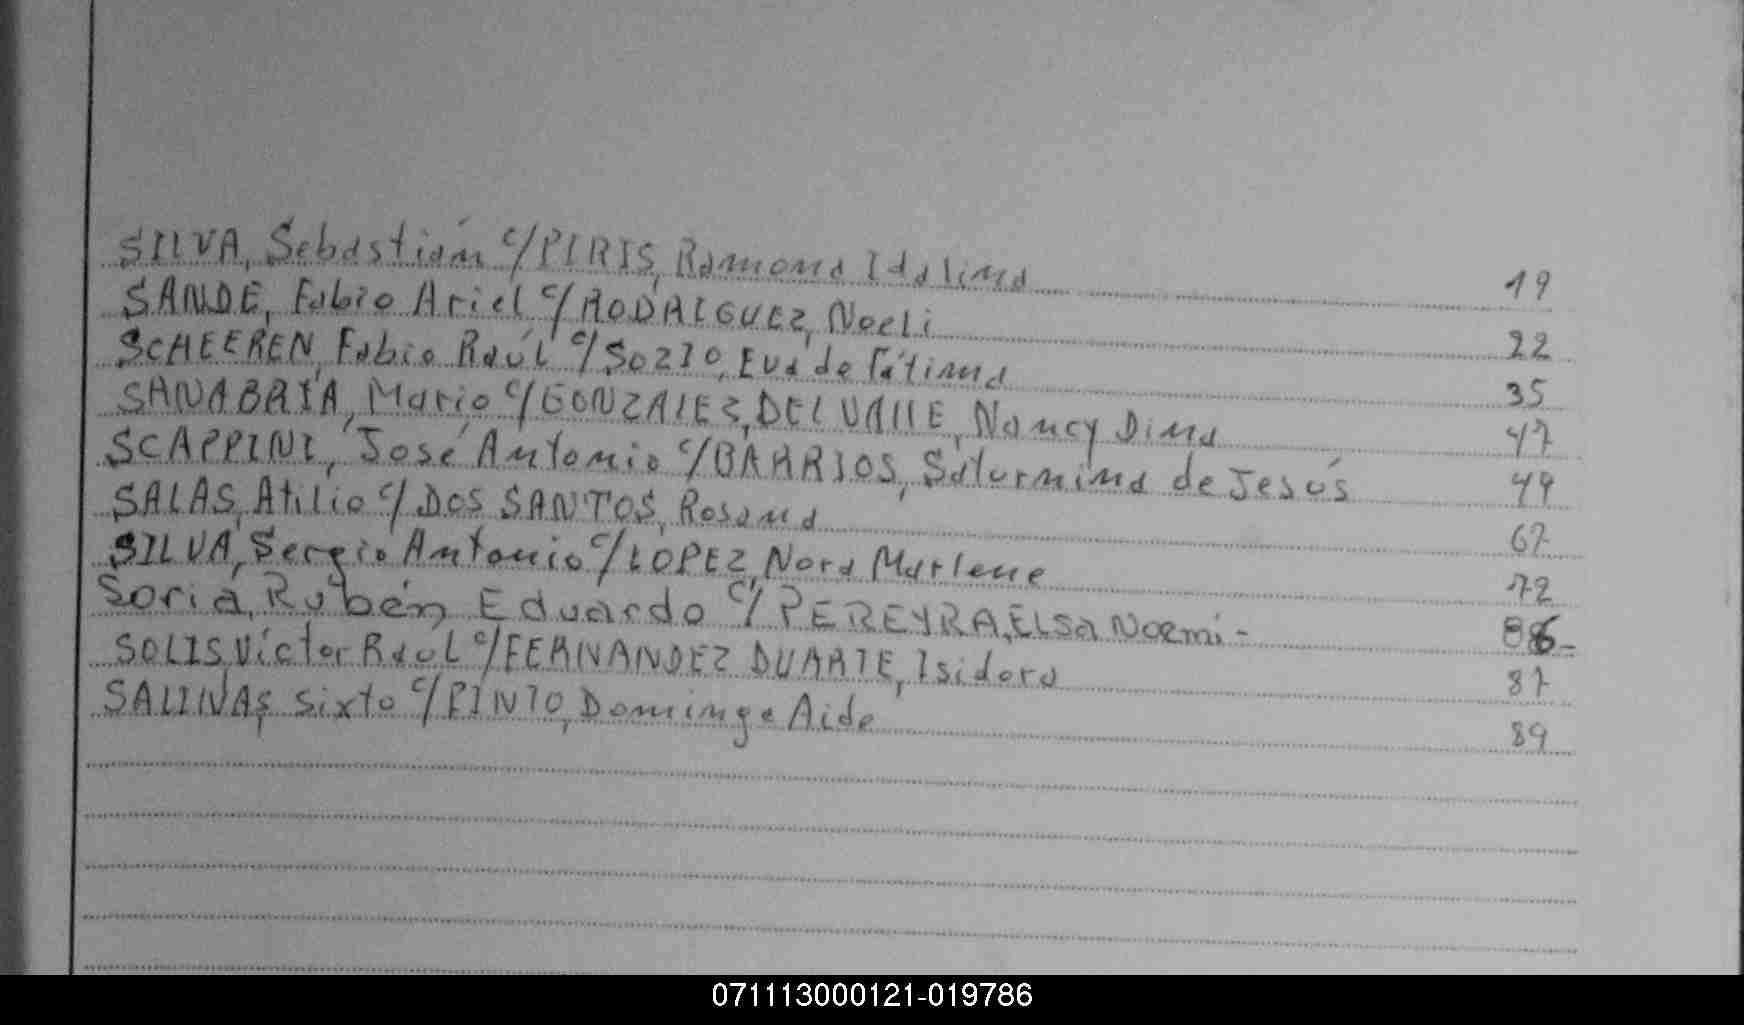 SILVA, Sebastián c/PIRIS, Ramona Idalina 19
SANDE, Fabio Ariel c/RODRIGUEZ, Noeli 22
SCHEEREN, Fabio Raúl c/SOZIO, Eva de Fátima 35
SANABRIA, Mario c/GONZALEZ, DEL VALLE, Nancy Dina 47
SCAPPINI, José Antonio c/BARRIOS, Saturnina de Jesús 49
SALAS, Atilio c/DOS SANTOS, Rosana 67
SILVA, Sergio Antonio c/LOPEZ, Nora Marlene 72
Soria, Rubén Eduardo c/PEREYRA, ELSA Noemi- 86-
SOLIS Víctor RaúL c/FERNANDEZ DUARTE, Isidora 87
SALINAS, Sixto c/PINTO, Dominga Aide 89
071113000121-019786